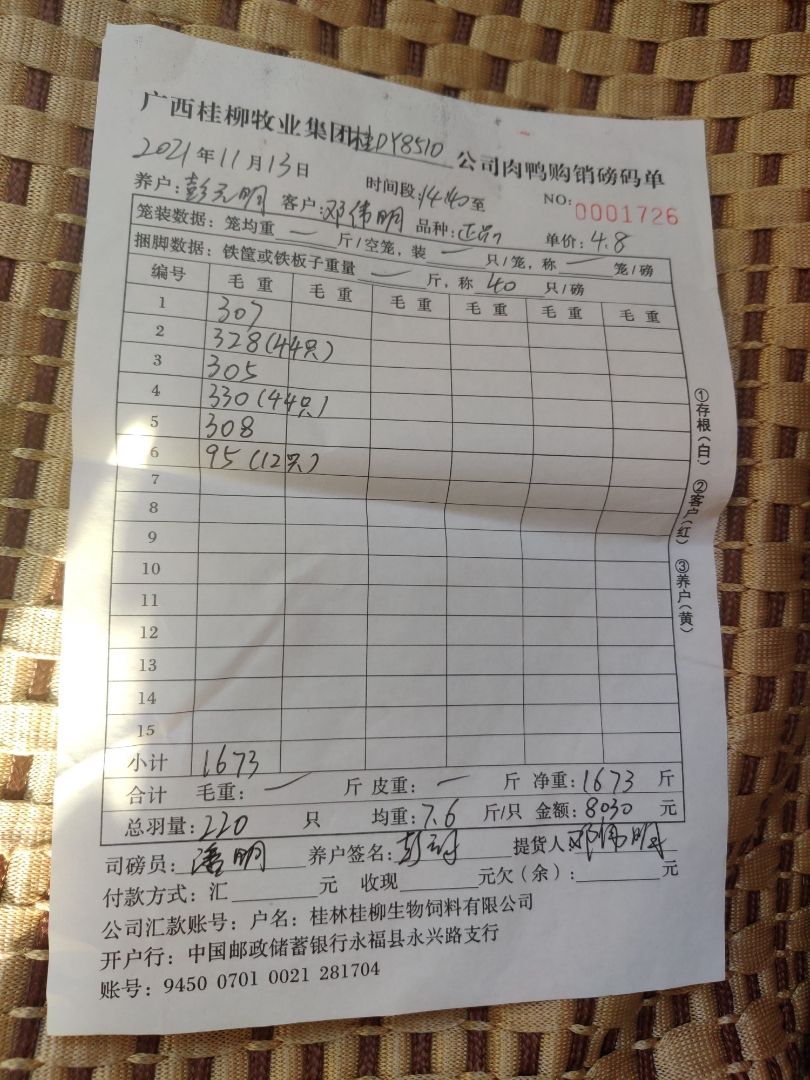 广西桂柳牧业集团桂DY8510公司肉鸭购销磅码单
2021年11月13日 时间段:14.40至 NO:0001726
养户: 客户:邓伟明 品种:正品 单价:4.8
笼装数据:笼均重 一 斤/空笼,装 一 只/笼,称 一 笼/磅
捆脚数据:铁筐或铁板子重量 一 斤,称 40 只/磅
编号 毛重 毛重 毛重 毛重 毛重 毛重
1 307
2 328(44只)
3 305
4 330(44只)
5 308
6 95(12只)
7
8
9
10
11
12
13
14
15
小计 1673
合计 毛重: 一 斤 皮重: 一 斤 净重:1673 斤
总羽量:220 只 均重:7.6 斤/只 金额:8030 元
司磅员:潘明 养户签名: 提货人邓伟明
付款方式:汇 元 收现 元欠(余): 元
公司汇款账号:户名:桂林桂柳生物饲料有限公司
开户行:中国邮政储蓄银行永福县永兴路支行
账号:9450 0701 0021 281704
①存根(白) ②客户(红) ③养户(黄)